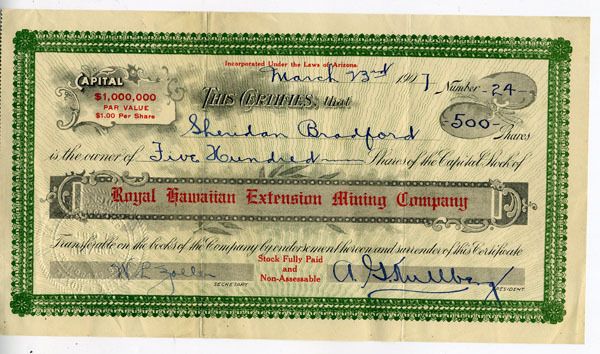 Incorporated Under the Laws of Arizona.
March 23rd 1907
Number -24-
CAPITAL
$1,000,000
PAR VALUE
$1.00 Per Share
THIS CERTIFIES, that
-500- Shares
Sheridan Bradford
is the owner of Five Hundred Shares of the Capital Stock of
Royal Hawaiian Extension Mining Company
Transferable on the books of the Company by endorsement hereon and surrender of this Certificate
Stock Fully Paid
and
Non-Assessable
SECRETARY
PRESIDENT